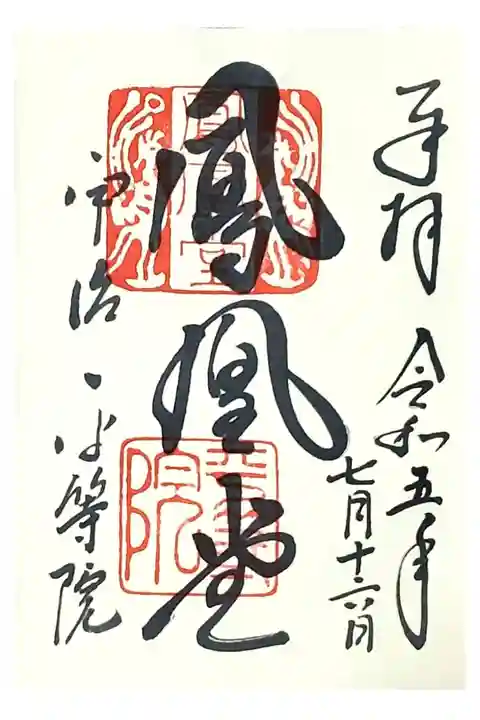 奉拝 令和五年
七月十六日
鳳凰堂
宇治・平等院
鳳凰堂
平等院